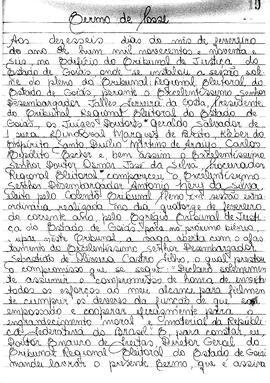 Termo de Posse
Aos dezesseis dias do mês de fevereiro
do ano de hum mil novecentos e noventa e
seis, no Edifício do Tribunal de Justiça do
Estado de Goiás, onde se instalou a sessão sole
ne do pleno do Tribunal Regional Eleitoral do
Estado de Goiás, perante o Excelentíssimo Senhor
Desembargador Jalles Ferreira da Costa, Presidente
do Tribunal Regional Eleitoral do Estado de
Goiás, os Juízes Doutores Geraldo Salvador de
Moura, Lindoval Marques de Brito, Kéber do
Espírito Santo, Duílio Martins de Araújo, Carlos
Alberto e bem assim o Excelentíssimo
Senhor Doutor Osmar José da Silva, Procurador
Regional Eleitoral compareceu o Excelentíssimo
Senhor Desembargador Antônio Nery da Silva
eleito pelo Colendo Tribunal Pleno em sessão extra
ordinária realizada no dia quatorze de fevereiro
do corrente ano, pelo Egrégio Tribunal de Justi
ça do Estado de Goiás para no próximo biênio
ocupar neste Tribunal a vaga aberta com o afas
tamento do Excelentíssimo senhor Desembargador
Sebastião de Oliveira Castro Filho, o qual prestou
o compromisso que se segue: "Declaro solenemen
te assumir o compromisso de honra de envidar
todos os esforços ao meu alcance para fielmen
te cumprir os deveres da função de que
empossado e cooperar eficazmente para o
engrandecimento moral e material da Repúbli
ca Federativa do Brasil". E, para constar, eu,
Doutor de Freitas, Diretor Geral do
Tribunal Regional Eleitoral do Estado de Goiás
mandei lavrar o presente termo, que é assina